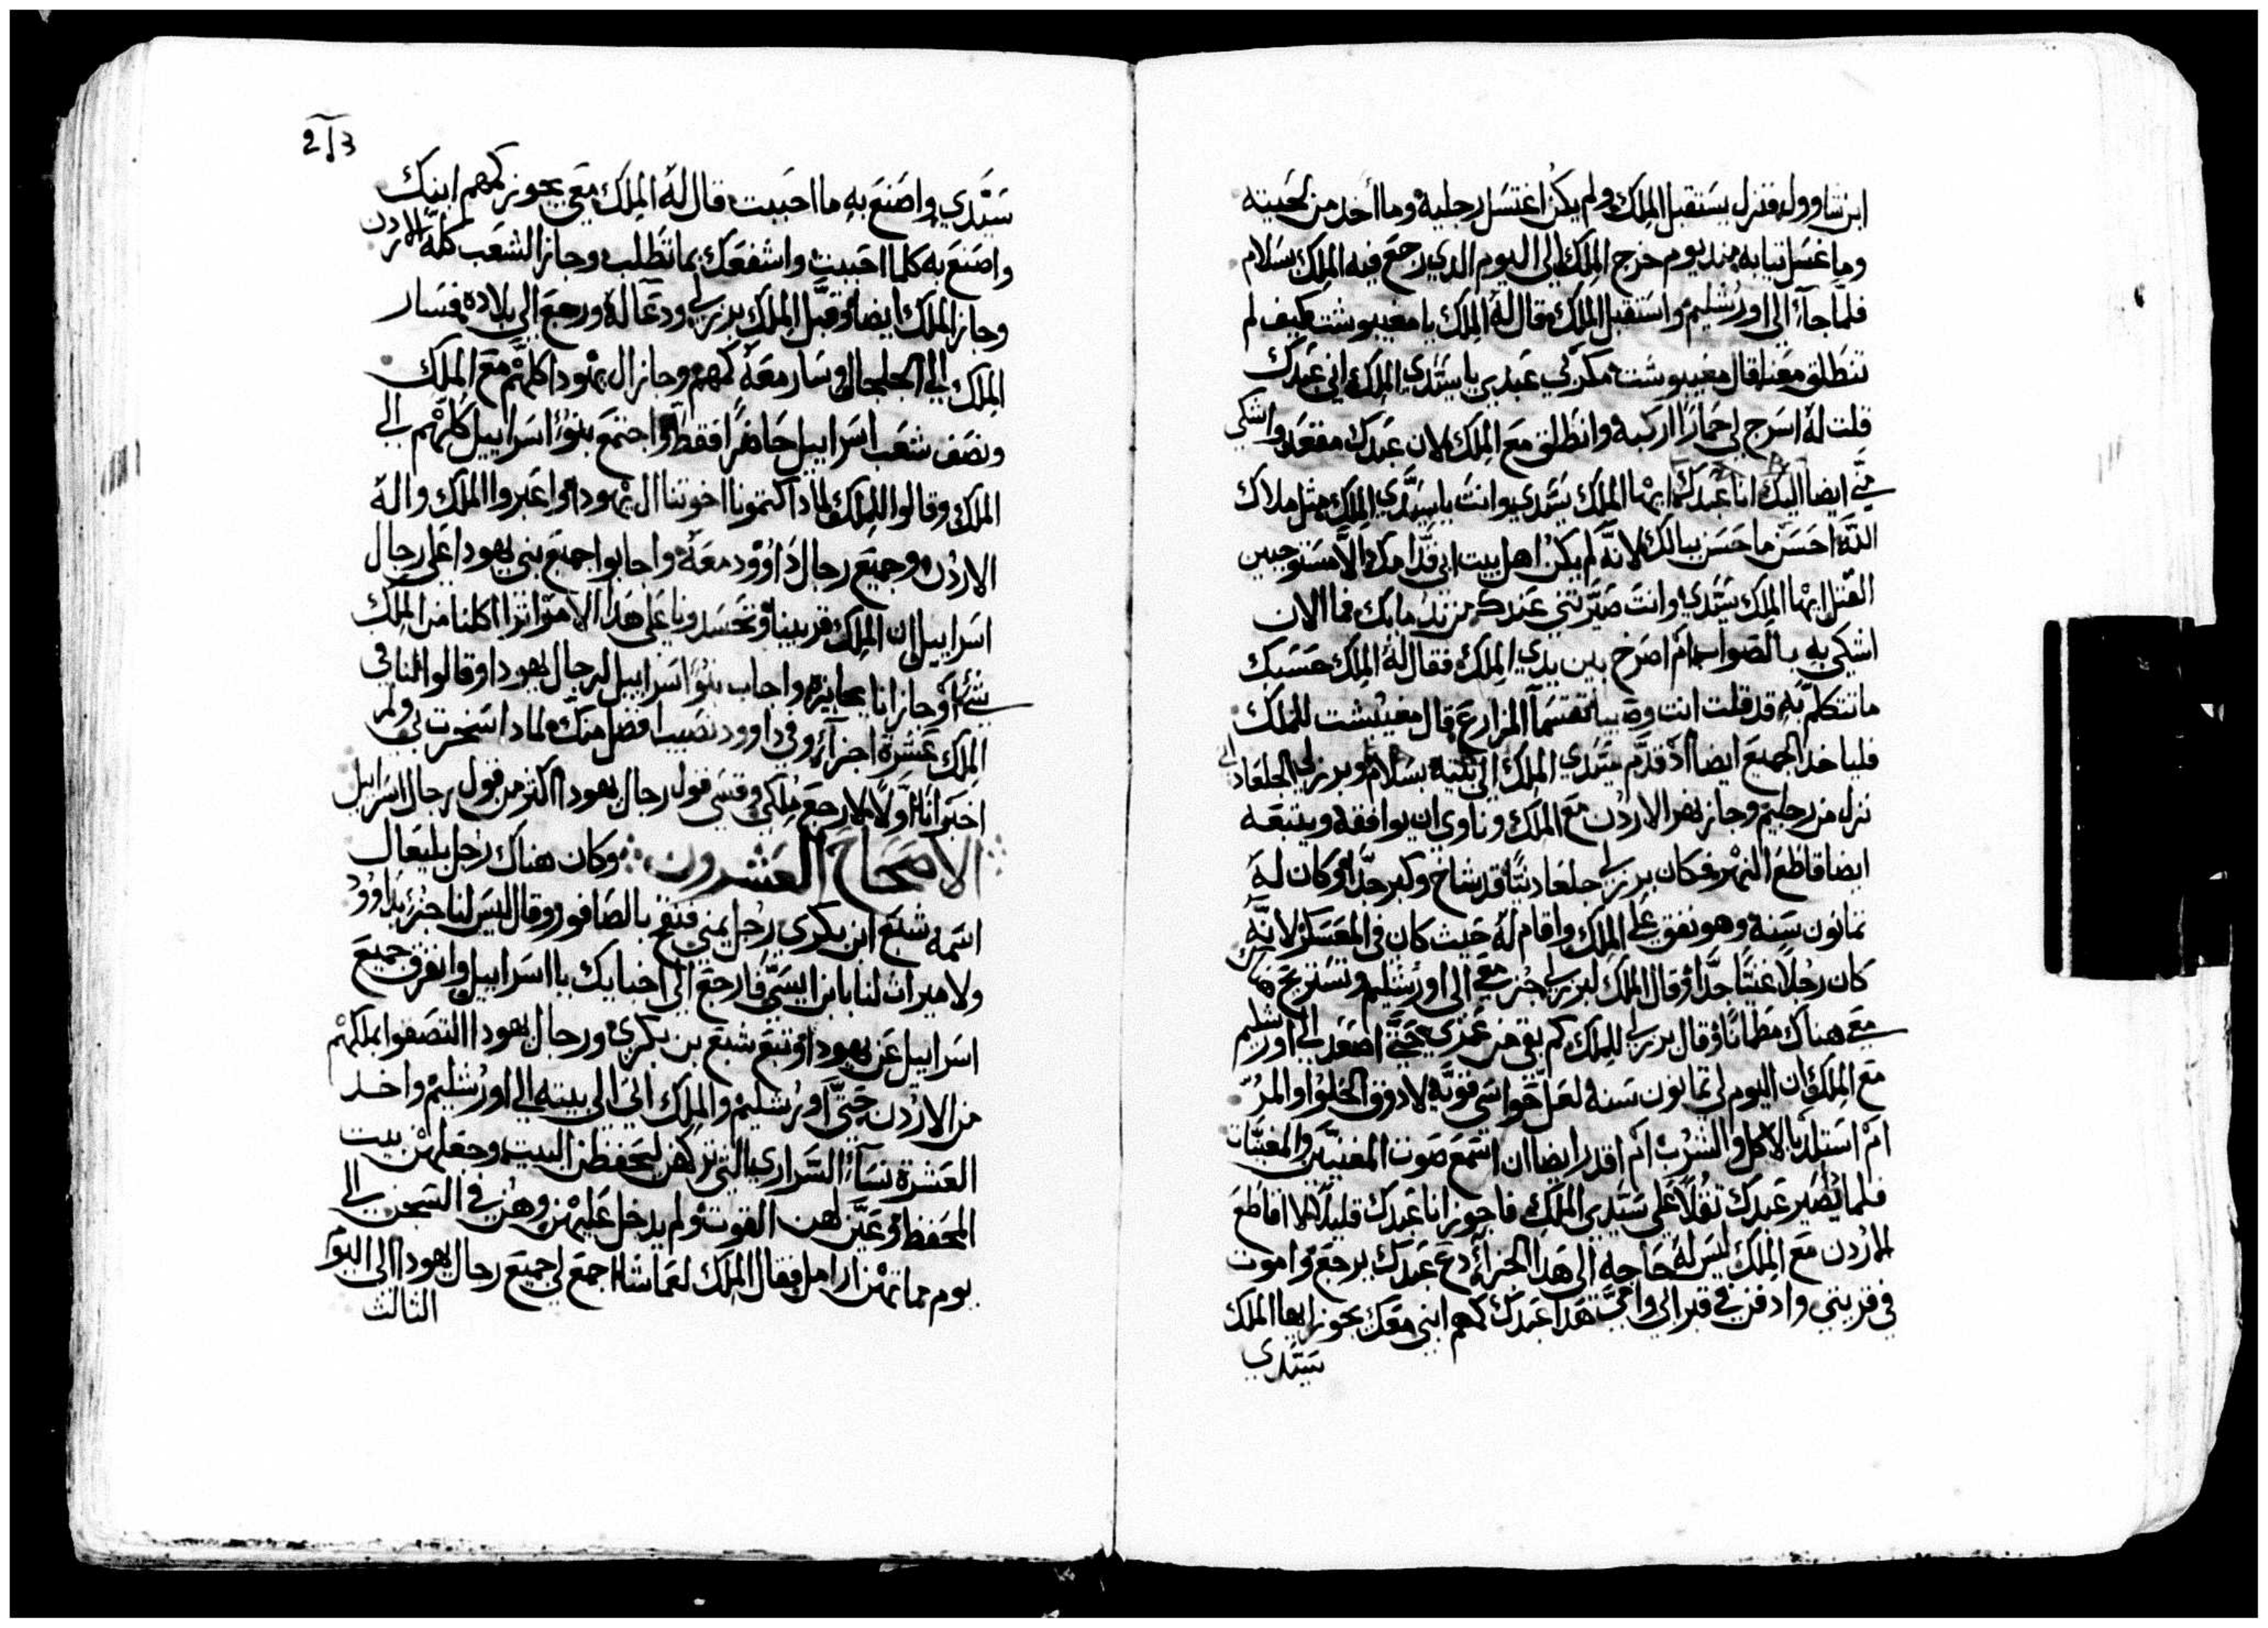 ابن شاوول فنزل يستقبل الملك ولم يكن اغتسل رجليه وما أخد من لحيته
وما غسل تيابه مند يوم خرج الملك الى اليوم الدي رجع فيه الملك بسلام
فلما جاء الى اورشليم واستقبل الملك فقال له الملك يا مفيبوشت كيف لم
تنطلق معنا فقال مفيبوشت مكر بي عبدي يا سيدي الملك اني عبدك
قلت له اسرج لي حمارا اركبه وانطلق مع الملك لان عبدك مقعد واشكي
مني ايضا اليك انا عبدك ايها الملك سيدي وانت يا سيدي الملك مثل ملاك
الله احسن ما حسن ببالك لانه لم يكن اهل بيت ابي قدامك الا مستوجبين
القتل ايها الملك سيدي وانت صيرتني عبدك من ندمايك فما الان
اشكي به بالصواب ام اصرخ بين يدي الملك فقال له الملك حسبك
ما تتكلم به قد قلت انت وصيبا تقتسما المزارع قال مفيبشت للملك
فلياخد الجميع ايضا اد قدم سيدي الملك الى بيته بسلام وبرزلي الجلعادي
نزل من رجليم وجاز نهر الاردن مع الملك وناوي ان يوافقه ويتبعه
ايضا قاطع النهر وكان برزلي جلعاديا قد شاخ وكبر جدا وكان له
تمانون سنة وهو نفق على الملك واقام له حيث كان في المعسكر لانه
كان رجلا غنيا جدا وقال الملك لبرزلي جز معي الى اورشليم وتستريح هناك
معي هناك مطمانا وقال برزلي للملك كم بقي من عمري حتى اصعد الى اورشليم
مع الملك ان اليوم لي تمانون سنة لعل حواسي قوية لادوق الحلو او المر
ام استلد بالاكل والشرب ام اقدر ايضا ان اسمع صوت المغنيين والمغنيات
فلما يصير عبدك تقلا على سيدي الملك فاجوز انا عبدك قليلا اقاطع
الاردن مع الملك ليس له حاجه الى هدا الجزاء دع عبدك يرجع واموت
في قريتي وادفن في قبر ابي وامي هدا عبدك كمهم ابني معك يجوز ايها الملك
سيدي
سيدي واصنع به ما احببت قال له الملك معي يجوز كمهم ابنك
واصنع به كلما احببت واشفعك بما تطلب وجاز الشعب كله الاردن
وجاز الملك ايضا وقبل الملك برزلي ودعا له ورجع الى بلاده فسار
الملك الى الجلجال وسار معه كمهم وجاز ال يهودا كلهم مع الملك
ونصف شعب اسراييل حاضرا فقط واجتمع بنوا اسراييل كلهم الى
الملك وقالوا للملك لمادا كتمونا اخوتنا ال يهودا واعبروا الملك واله
الاردن وجميع رجال داوود معه واجابوا جميع بني يهودا على رجال
اسراييل ان الملك قريبنا وتحسدونا على هدا الامر اترا اكلنا من الملك
شي او جازانا بجايزة واجاب بنوا اسراييل لرجال يهودا وقالوا لنا في
الملك عشرة اجزاء وفي داوود نصيب افضل منك لمادا استخرت بي ولم
اخبر انا اولا لارجع ملكي وقسي قول رجال يهودا اكتر من قول رجال اسراييل
الاصحاح العشرون وكان هناك رجل بليعال
اسمه شبع ابن بكري رجل يمني فنفخ بالصافور وقال ليس لنا جزء بداوود
ولا ميرات لنا بابن ايسي فارجع الى اخبايك يا اسراييل وانفرق جميع
اسراييل عن يهودا وتبع شبع بن بكري ورجال يهودا التصقوا بملكهم
من الاردن حتى اورشليم والملك اتى الى بيته الى اورشليم واخد
العشرة نساء السراري التي تركهن ليحفظن البيت وجعلهن بيت
المحفظ وعين لهن القوت ولم يدخل عليهن وهن في السجن الى
يوم مماتهن ارامل فقال الملك لعماشا اجمع لي جميع رجال يهودا الى اليوم
التالت